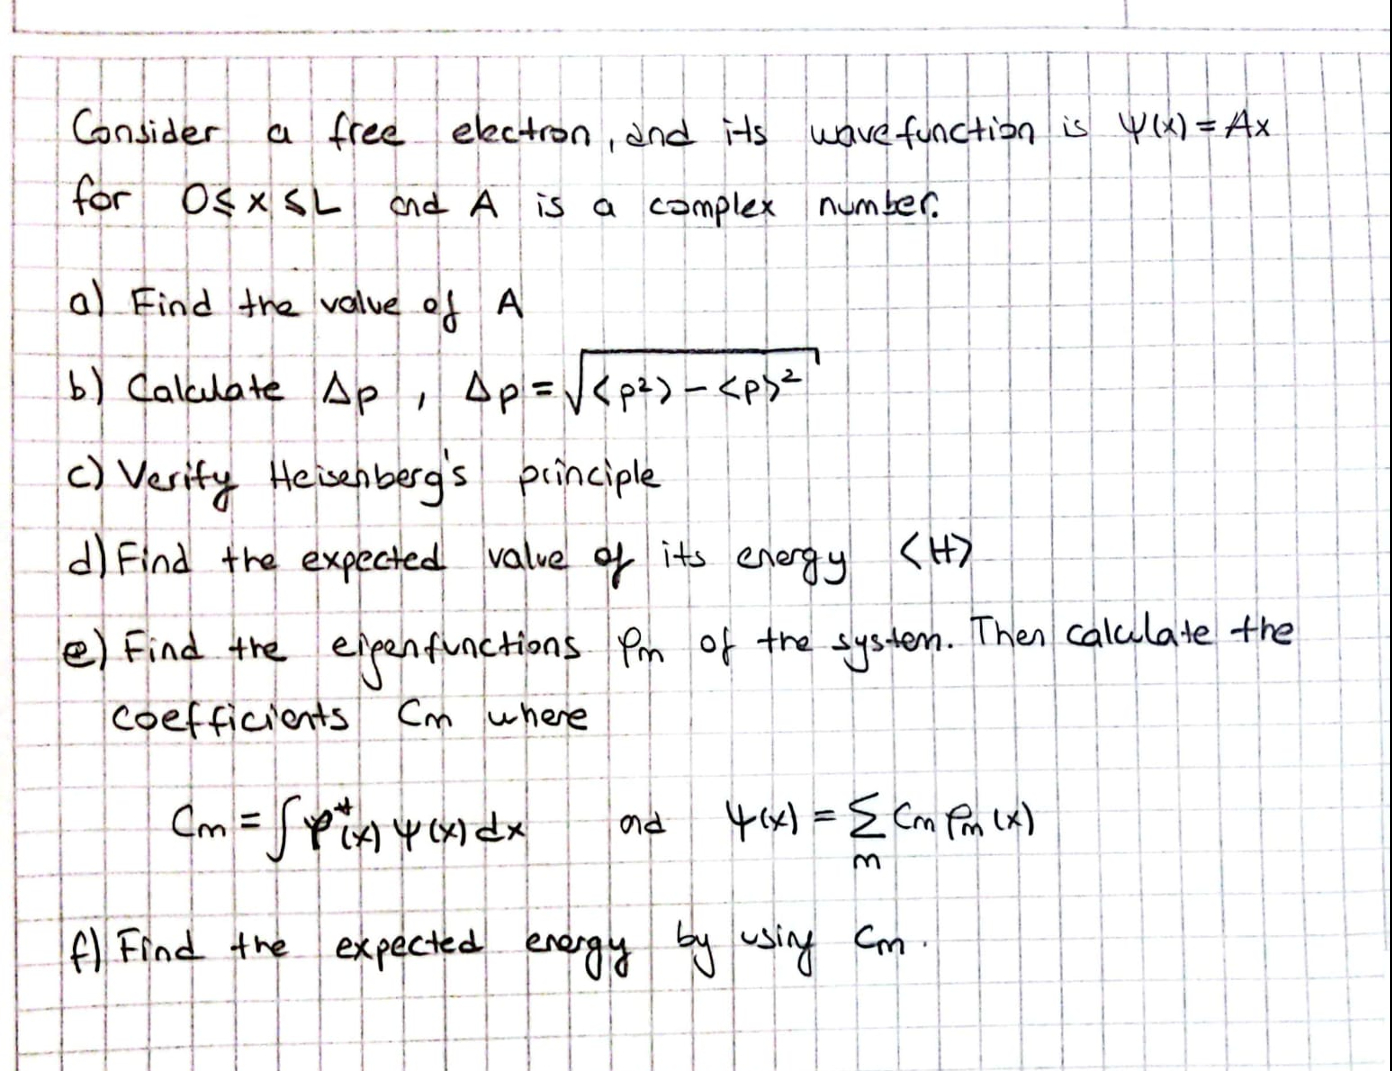 Consider a free electron, and its wavefunction is Ψ(x) = Ax
for 0 ≤ x ≤ L and A is a complex number.
a) Find the value of A
b) Calculate Δp , Δp = √(<p²> - <p>²)
c) Verify Heisenberg's principle
d) Find the expected value of its energy <H>
e) Find the eigenfunctions φm of the system. Then calculate the
coefficients Cm where
Cm = ∫ φ*(x) Ψ(x) dx and Ψ(x) = Σm Cm φm (x)
f) Find the expected energy by using Cm.